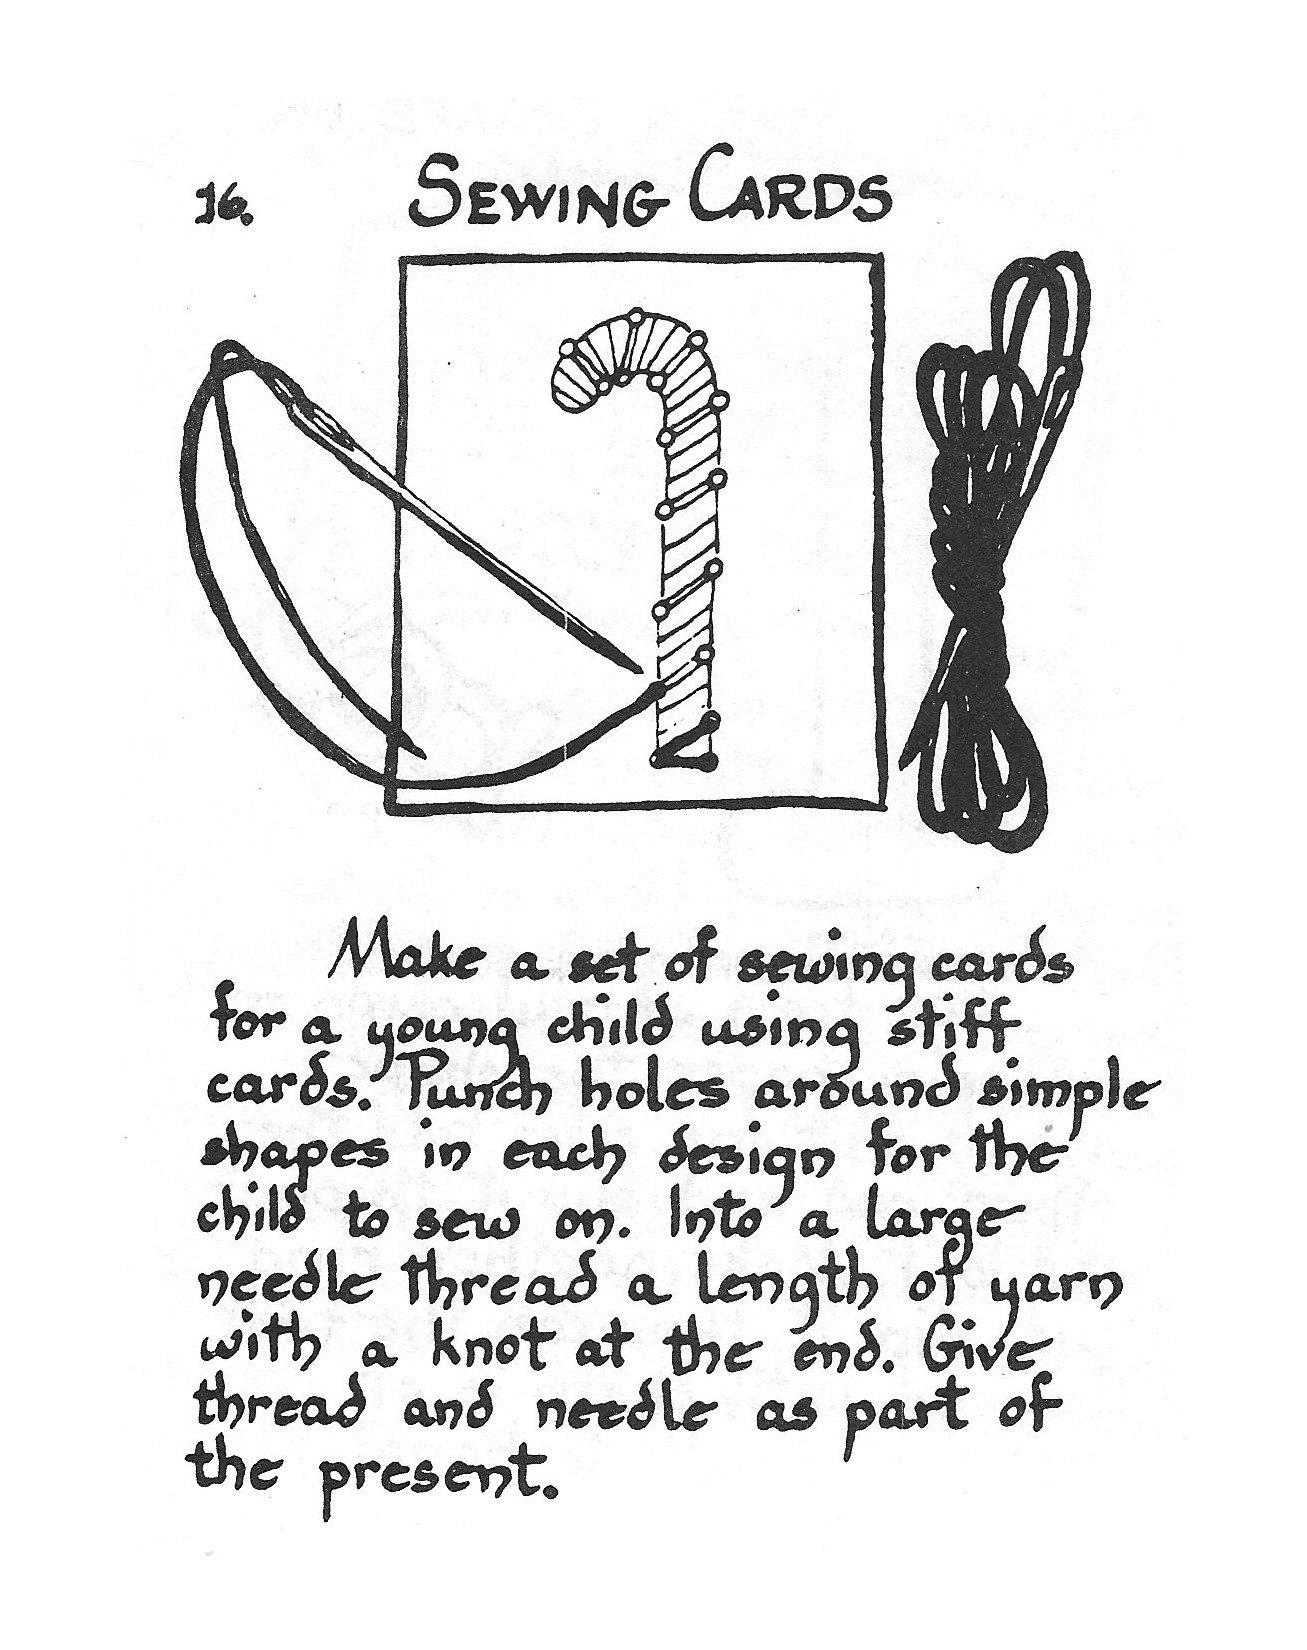 16. SEWING CARDS
Make a set of sewing cards
for a young child using stiff
cards. Punch holes around simple
shapes in each design for the
child to sew on. Into a large
needle thread a length of yarn
with a knot at the end. Give
thread and needle as part of
the present.